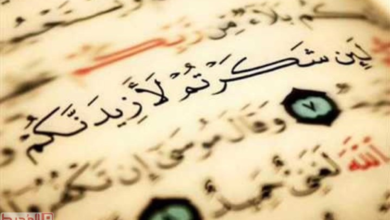 كم بلاء من ربكم
لَئِن شَكَرْتُمْ لَأَزِيدَنَّكُمْ
٧ وقال موسى إن تكفر
الله لغني حميد